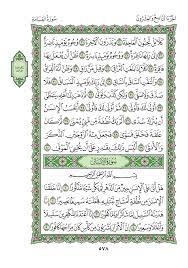 الجزء التاسع والعشرون سورة القيامة
كَلَّا بَلْ تُحِبُّونَ الْعَاجِلَةَ ٢٠ وَتَذَرُونَ الْآخِرَةَ ٢١ وُجُوهٌ يَوْمَئِذٍ نَّاضِرَةٌ
٢٢ إِلَىٰ رَبِّهَا نَاظِرَةٌ ٢٣ وَوُجُوهٌ يَوْمَئِذٍ بَاسِرَةٌ ٢٤ تَظُنُّ أَن يُفْعَلَ بِهَا
فَاقِرَةٌ ٢٥ كَلَّا إِذَا بَلَغَتِ التَّرَاقِيَ ٢٦ وَقِيلَ مَنْ رَاقٍ ٢٧ وَظَنَّ أَنَّهُ الْفِرَاقُ
٢٨ وَالْتَفَّتِ السَّاقُ بِالسَّاقِ ٢٩ إِلَىٰ رَبِّكَ يَوْمَئِذٍ الْمَسَاقُ ٣٠ فَلَا صَدَّقَ
وَلَا صَلَّىٰ ٣١ وَلَٰكِن كَذَّبَ وَتَوَلَّىٰ ٣٢ ثُمَّ ذَهَبَ إِلَىٰ أَهْلِهِ يَتَمَطَّىٰ ٣٣
أَوْلَىٰ لَكَ فَأَوْلَىٰ ٣٤ ثُمَّ أَوْلَىٰ لَكَ فَأَوْلَىٰ ٣٥ أَيَحْسَبُ الْإِنسَانُ
أَن يُتْرَكَ سُدًى ٣٦ أَلَمْ يَكُ نُطْفَةً مِّن مَّنِيٍّ يُمْنَىٰ ٣٧ ثُمَّ كَانَ عَلَقَةً
فَخَلَقَ فَسَوَّىٰ ٣٨ فَجَعَلَ مِنْهُ الزَّوْجَيْنِ الذَّكَرَ
وَالْأُنثَىٰ ٣٩ أَلَيْسَ ذَٰلِكَ بِقَادِرٍ عَلَىٰ أَن يُحْيِيَ الْمَوْتَىٰ ٤٠
سورة الإنسان
بِسْمِ اللَّهِ الرَّحْمَٰنِ الرَّحِيمِ
هَلْ أَتَىٰ عَلَى الْإِنسَانِ حِينٌ مِّنَ الدَّهْرِ لَمْ يَكُن شَيْئًا مَّذْكُورًا ١
إِنَّا خَلَقْنَا الْإِنسَانَ مِن نُّطْفَةٍ أَمْشَاجٍ نَّبْتَلِيهِ فَجَعَلْنَاهُ سَمِيعًا
بَصِيرًا ٢ إِنَّا هَدَيْنَاهُ السَّبِيلَ إِمَّا شَاكِرًا وَإِمَّا كَفُورًا ٣ إِنَّا أَعْتَدْنَا
لِلْكَافِرِينَ سَلَاسِلَا وَأَغْلَالًا وَسَعِيرًا ٤ إِنَّ الْأَبْرَارَ يَشْرَبُونَ
مِن كَأْسٍ كَانَ مِزَاجُهَا كَافُورًا ٥
٥٧٨